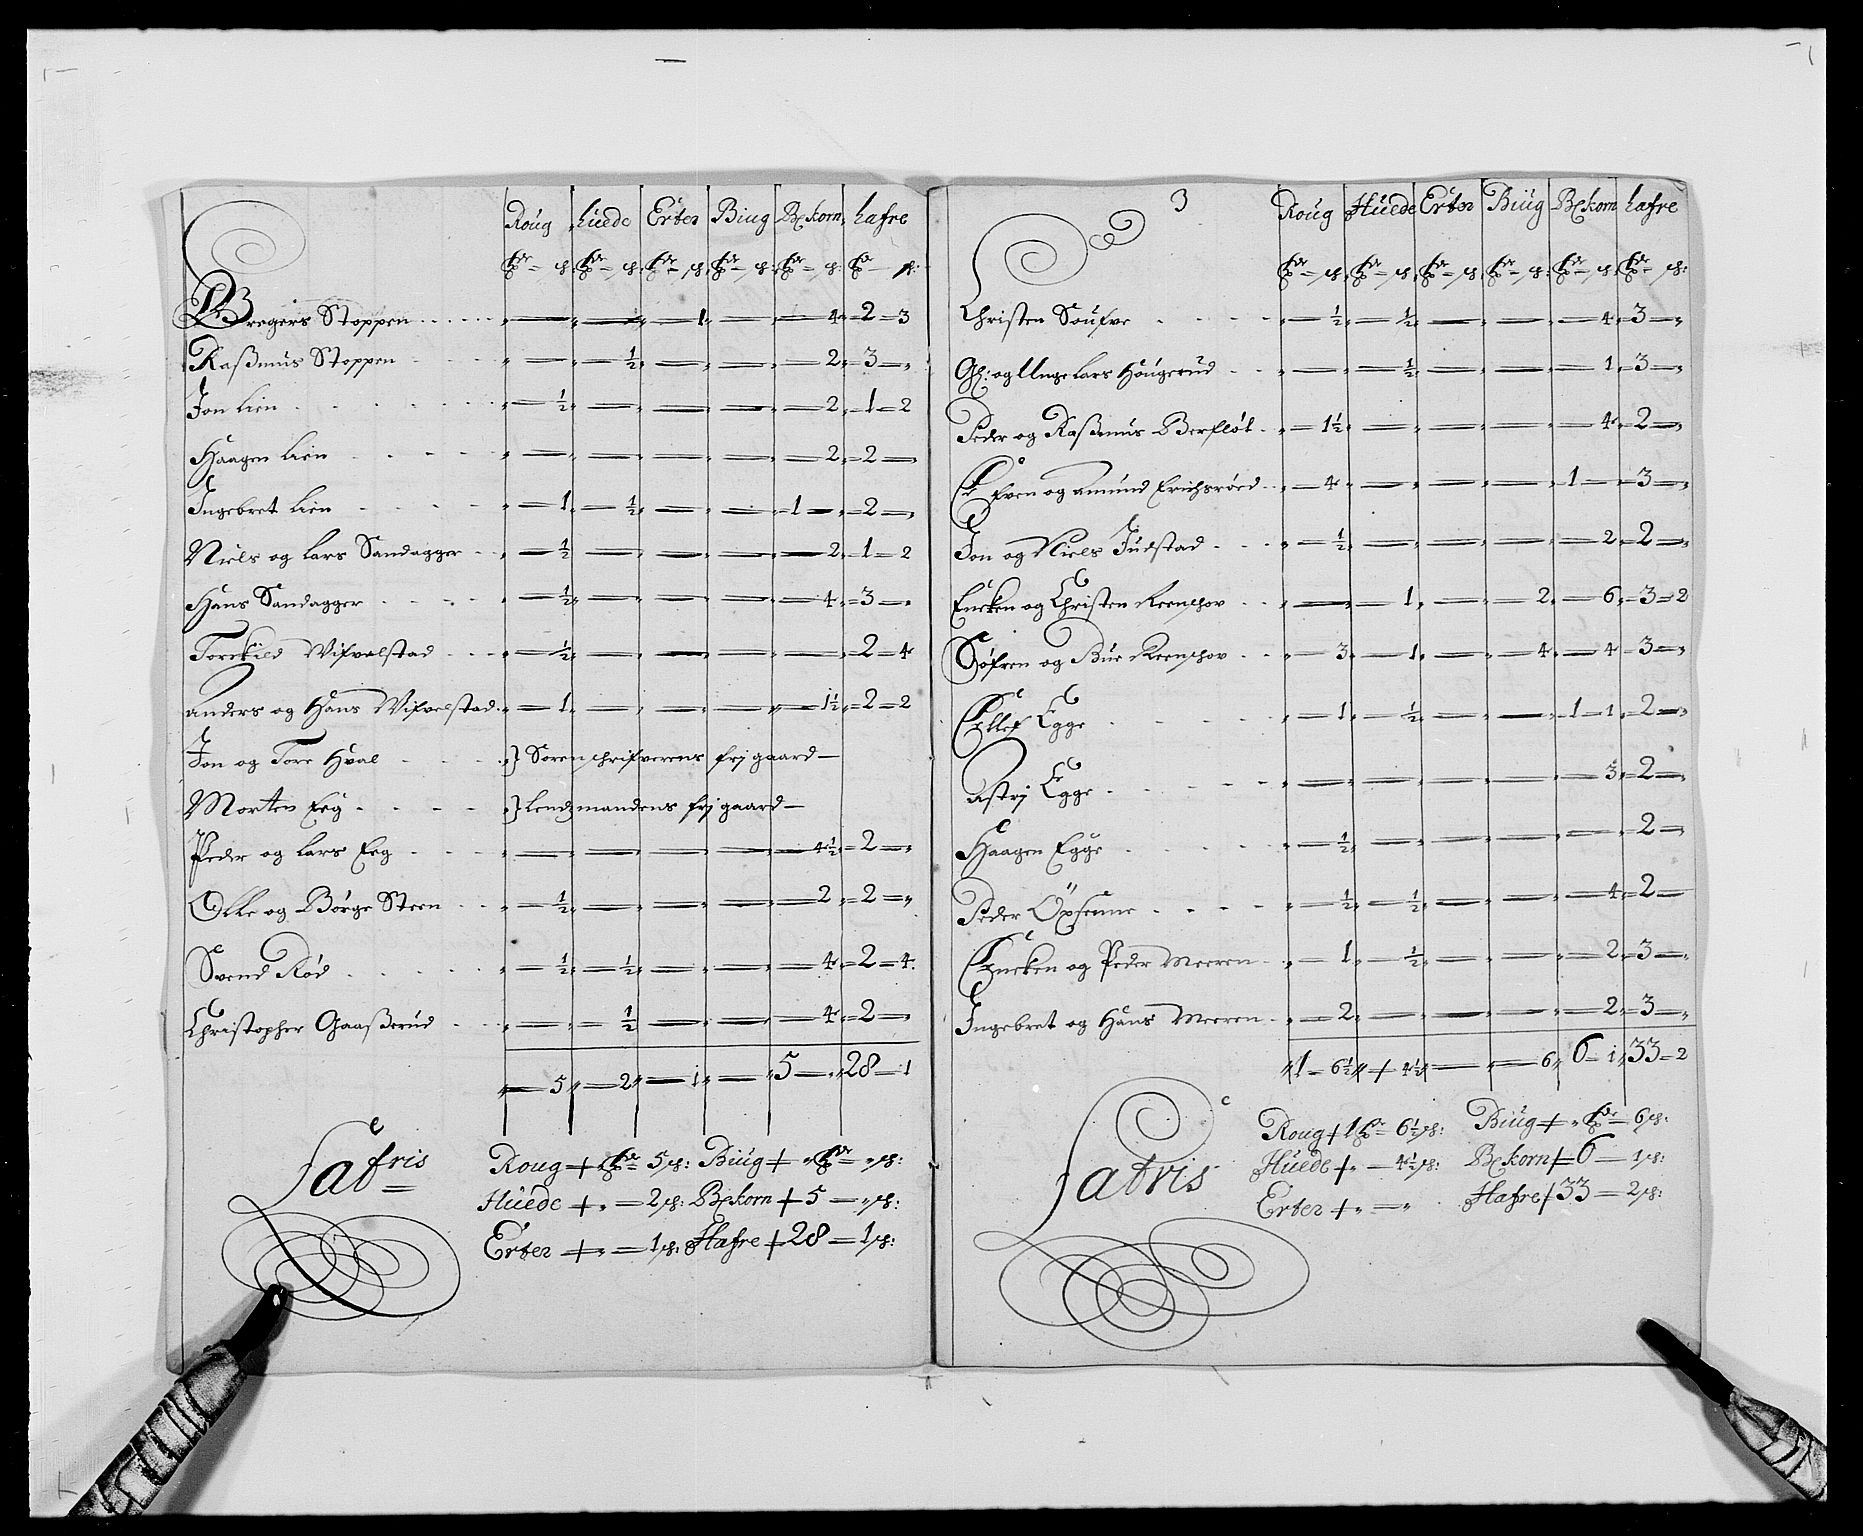 Roug huede Erter Biug Bl:korn hafre
tdr = s: tdr = s: tdr = s: tdr = s: tdr = s: td = s:
Bregers Stoppen . . . . — — — — — 1 — — 4 = 2 = 3
Raßmus Stoppen — — — ½ — — — 2 = 3 — „
Jon Lien . . . . — ½ — — — — 2 = 1 = 2
Haagen Lien . . . . — — — — — 2 = 2 — „
Ingebret Lien . . . . — 1 — ½ — — — 1 — = 2 — „
Niels og Lars Sandagger . . — ½ — — — — 2 = 1 = 2
Hans Sandagger . . . — ½ — — — — 4 = 3 — „
Torckild Wifvelstad . . . — ½ — — — — — = 2 = 4
anders og Hans Wifvelstad . — 1 — — — — 1½ = 2 = 2
Jon og Tore Hval . . . } Sorenschrifverens frj gaard —
Morten Eeg . . . . } Lendzmandens frj gaard —
Peder og Lars Eeg . . . — — — — — 4½ = 2 — „
Olle og Børge Steen . . — ½ — — — — 2 = 2 — „
Svend Rød . . . . — ½ — ½ — — — 4 = 2 = 4
Christopher Gaaßerud . . — — — ½ — — — 4 = 2 — „
— 5 — 2 — 1 — — 5 — „ 28 = 1
Latris
Roug + „ tdr = 5 s: Biug + „ tdr = „ s:
Huede + „ = 2 s: Bl:korn + 5 — „ s:
Erter + „ = 1 s: Hafre + 28 = 1 s:
3
Roug Huede Erter Biug Bl:korn hafre
tdr = s: tdr = s: tdr = s: tdr = s: tdr = s: tdr = s:
Christen Soufve . . . . — ½ — ½ — — — 4 = 3 — „
Gl: og Unge Lars Hougerud . . — — — ½ — — — 1 = 3 — „
Peder og Raßmus Berfløt . — 1½ — — — — 4 = 2 — „
Even og amund Erichsrøed . — 4 — — — — 1 — = 3 — „
Jon og Niels Judstad . . . — ½ — — — — 2 = 2 — „
Encken og Christen Reenschov . . — — — 1 — — 2 — 6 = 3 = 2
Søfren og Bue Reenschov . . — 3 — 1 — — 4 — 4 = 3 — „
Ellef Egge . . . . — 1 — ½ — — 1 — 1 = 2 — „
Astrj Egge . . . . — — — — — 3 = 2 — „
Haagen Egge . . . . — ½ — — — — — 2 — „
Peder Opsenne . . . . — ½ — ½ — — — 4 = 2 —
Encken og Peder Meeren . — 1 — ½ — — — 2 = 3 — „
Ingebret og Hans Meeren . — 2 — — — — 2 = 3 — „
1 = 6½ + 4½ — — 6 6 = 1 33 = 2
Latris
Roug + 1 tdr = 6½ s: Biug + „ tdr = 6 s:
Huede + „ — 4½ s: Bl:korn + 6 — 1 s:
Erter + „ — „ Hafre + 33 = 2 s: